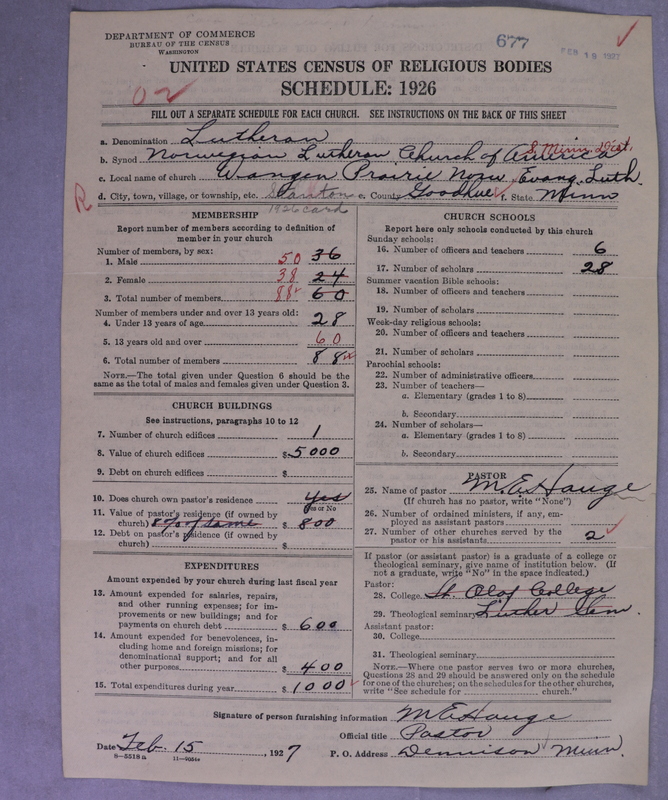 DEPARTMENT OF COMMERCE
BUREAU OF THE CENSUS
WASHINGTON
677
FEB 19 1927
UNITED STATES CENSUS OF RELIGIOUS BODIES
SCHEDULE: 1926
02
FILL OUT A SEPARATE SCHEDULE FOR EACH CHURCH. SEE INSTRUCTIONS ON THE BACK OF THIS SHEET
a. Denomination Lutheran
S. Minn. Dist.
b. Synod Norwegian Lutheran Church of America
c. Local name of church Wangen Prairie Norw. Evang. Luth.
R d. City, town, village, or township, etc. Stanton e. County Goodhue f. State Minn
1926 card
MEMBERSHIP
Report number of members according to definition of
member in your church
Number of members, by sex:
1. Male 50 36
2. Female 38 24
3. Total number of members 88 60
Number of members under and over 13 years old:
4. Under 13 years of age 28
5. 13 years old and over 60
6. Total number of members 88
NOTE.—The total given under Question 6 should be the
same as the total of males and females given under Question 3.
CHURCH BUILDINGS
See instructions, paragraphs 10 to 12
7. Number of church edifices 1
8. Value of church edifices $5000
9. Debt on church edifices $
10. Does church own pastor's residence yes
Yes or No
11. Value of pastor's residence (if owned by
church) 8% of same $800
12. Debt on pastor's residence (if owned by
church) $
EXPENDITURES
Amount expended by your church during last fiscal year
13. Amount expended for salaries, repairs,
and other running expenses; for im-
provements or new buildings; and for
payments on church debt $600
14. Amount expended for benevolences, in-
cluding home and foreign missions; for
denominational support; and for all
other purposes $400
15. Total expenditures during year $1000
CHURCH SCHOOLS
Report here only schools conducted by this church
Sunday schools:
16. Number of officers and teachers 6
17. Number of scholars 28
Summer vacation Bible schools:
18. Number of officers and teachers
19. Number of scholars
Week-day religious schools:
20. Number of officers and teachers
21. Number of scholars
Parochial schools:
22. Number of administrative officers
23. Number of teachers—
a. Elementary (grades 1 to 8)
b. Secondary
24. Number of scholars—
a. Elementary (grades 1 to 8)
b. Secondary
PASTOR
25. Name of pastor M. E. Hauge
(If church has no pastor, write "None")
26. Number of ordained ministers, if any, em-
ployed as assistant pastors
27. Number of other churches served by the
pastor or his assistants 2
If pastor (or assistant pastor) is a graduate of a college or
theological seminary, give name of institution below. (If
not a graduate, write "No" in the space indicated.)
Pastor:
28. College St. Olaf College
29. Theological seminary Luther Sem.
Assistant pastor:
30. College
31. Theological seminary
NOTE.—Where one pastor serves two or more churches,
Questions 28 and 29 should be answered only on the schedule
for one of the churches; on the schedules for the other churches,
write "See schedule for church."
Signature of person furnishing information M E Hauge
Official title Pastor
Date Feb. 15, 1927 P. O. Address Dennison Minn.
8—5518a 11—9054